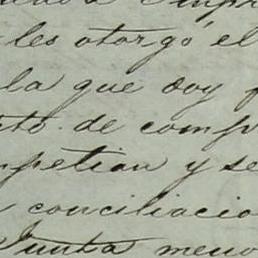 les otorgó el
la que doy
de comp
petian y se
conciliacio
Junta meno